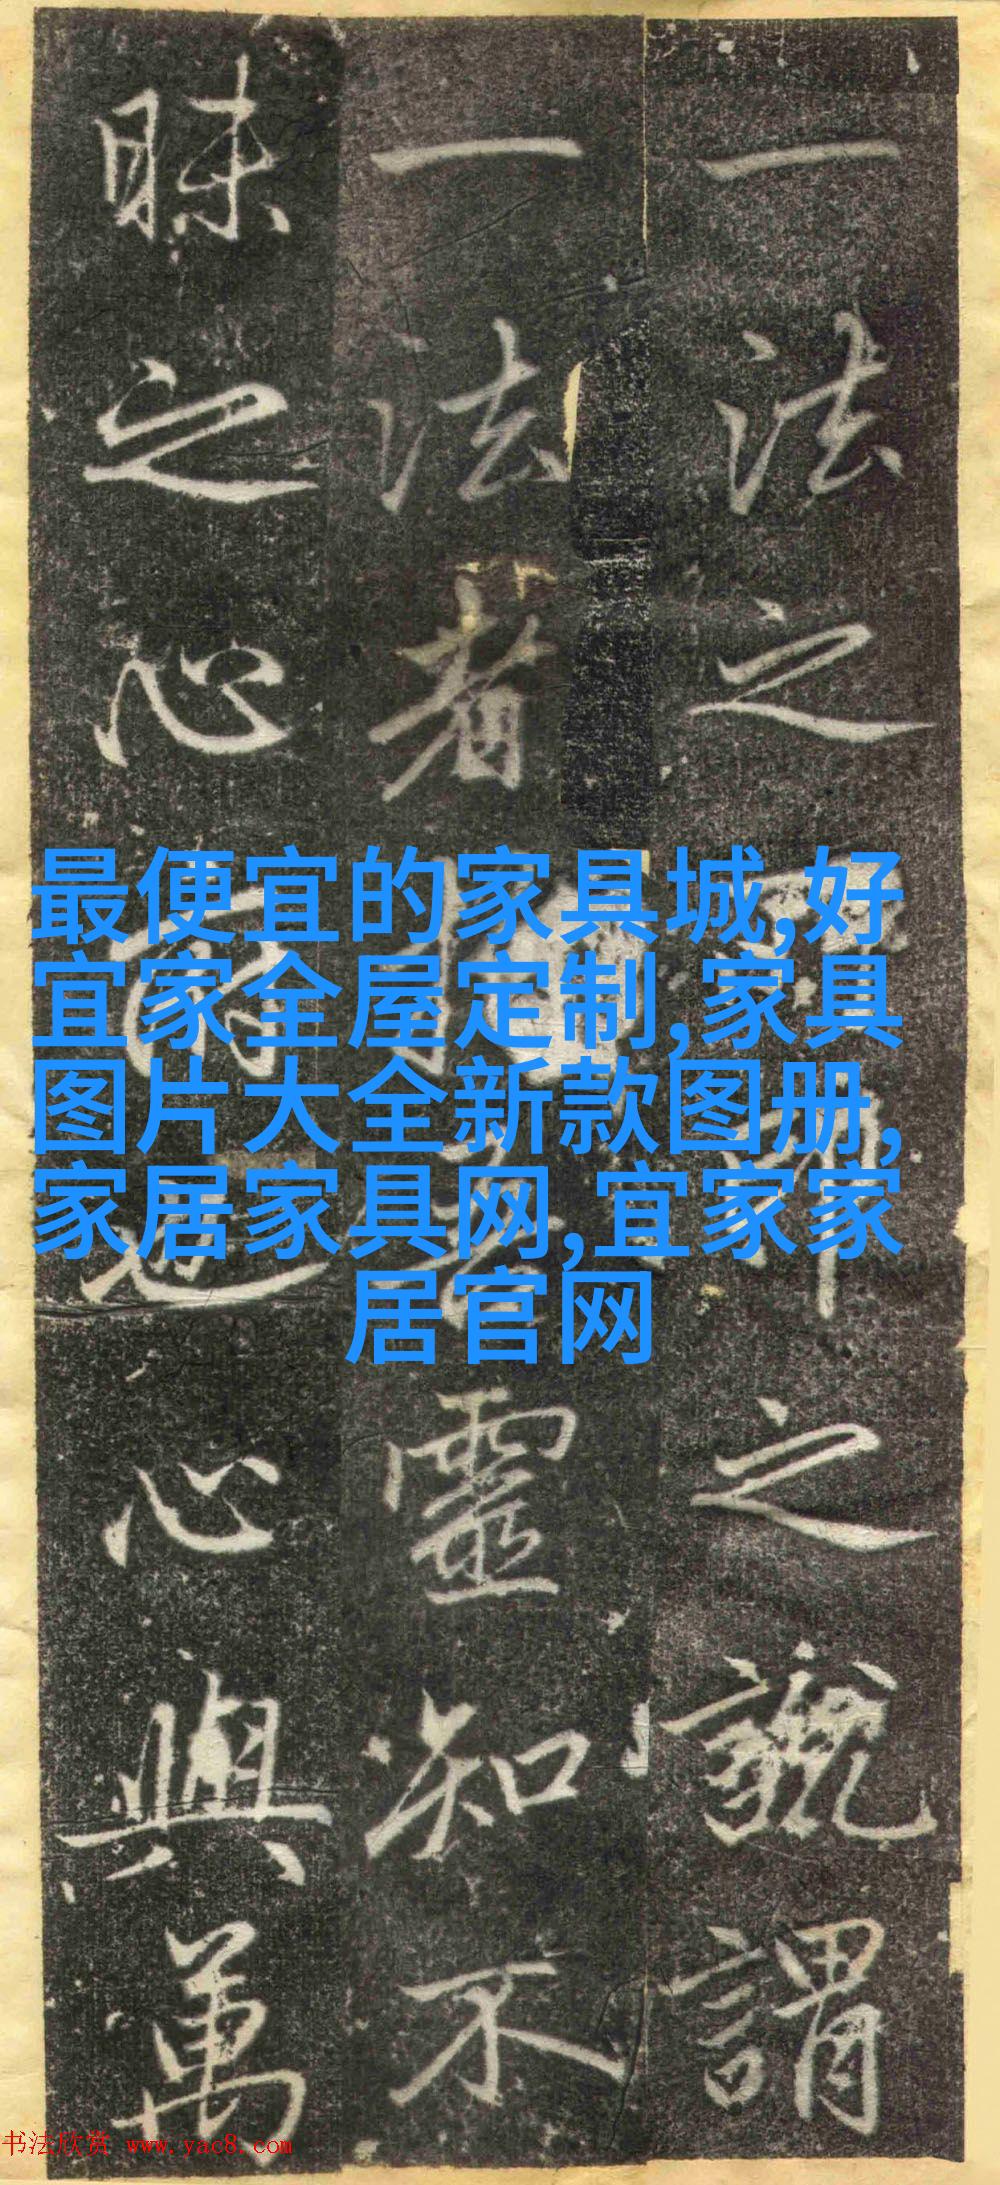 一法之之謂
一法者靈知不
昧之心也心與萬
最便宜的家具城,好
宜家全屋定制,家具
图片大全新款图册,
家居家具网,宜家家
居官网
书法欣赏 www.yac8.com